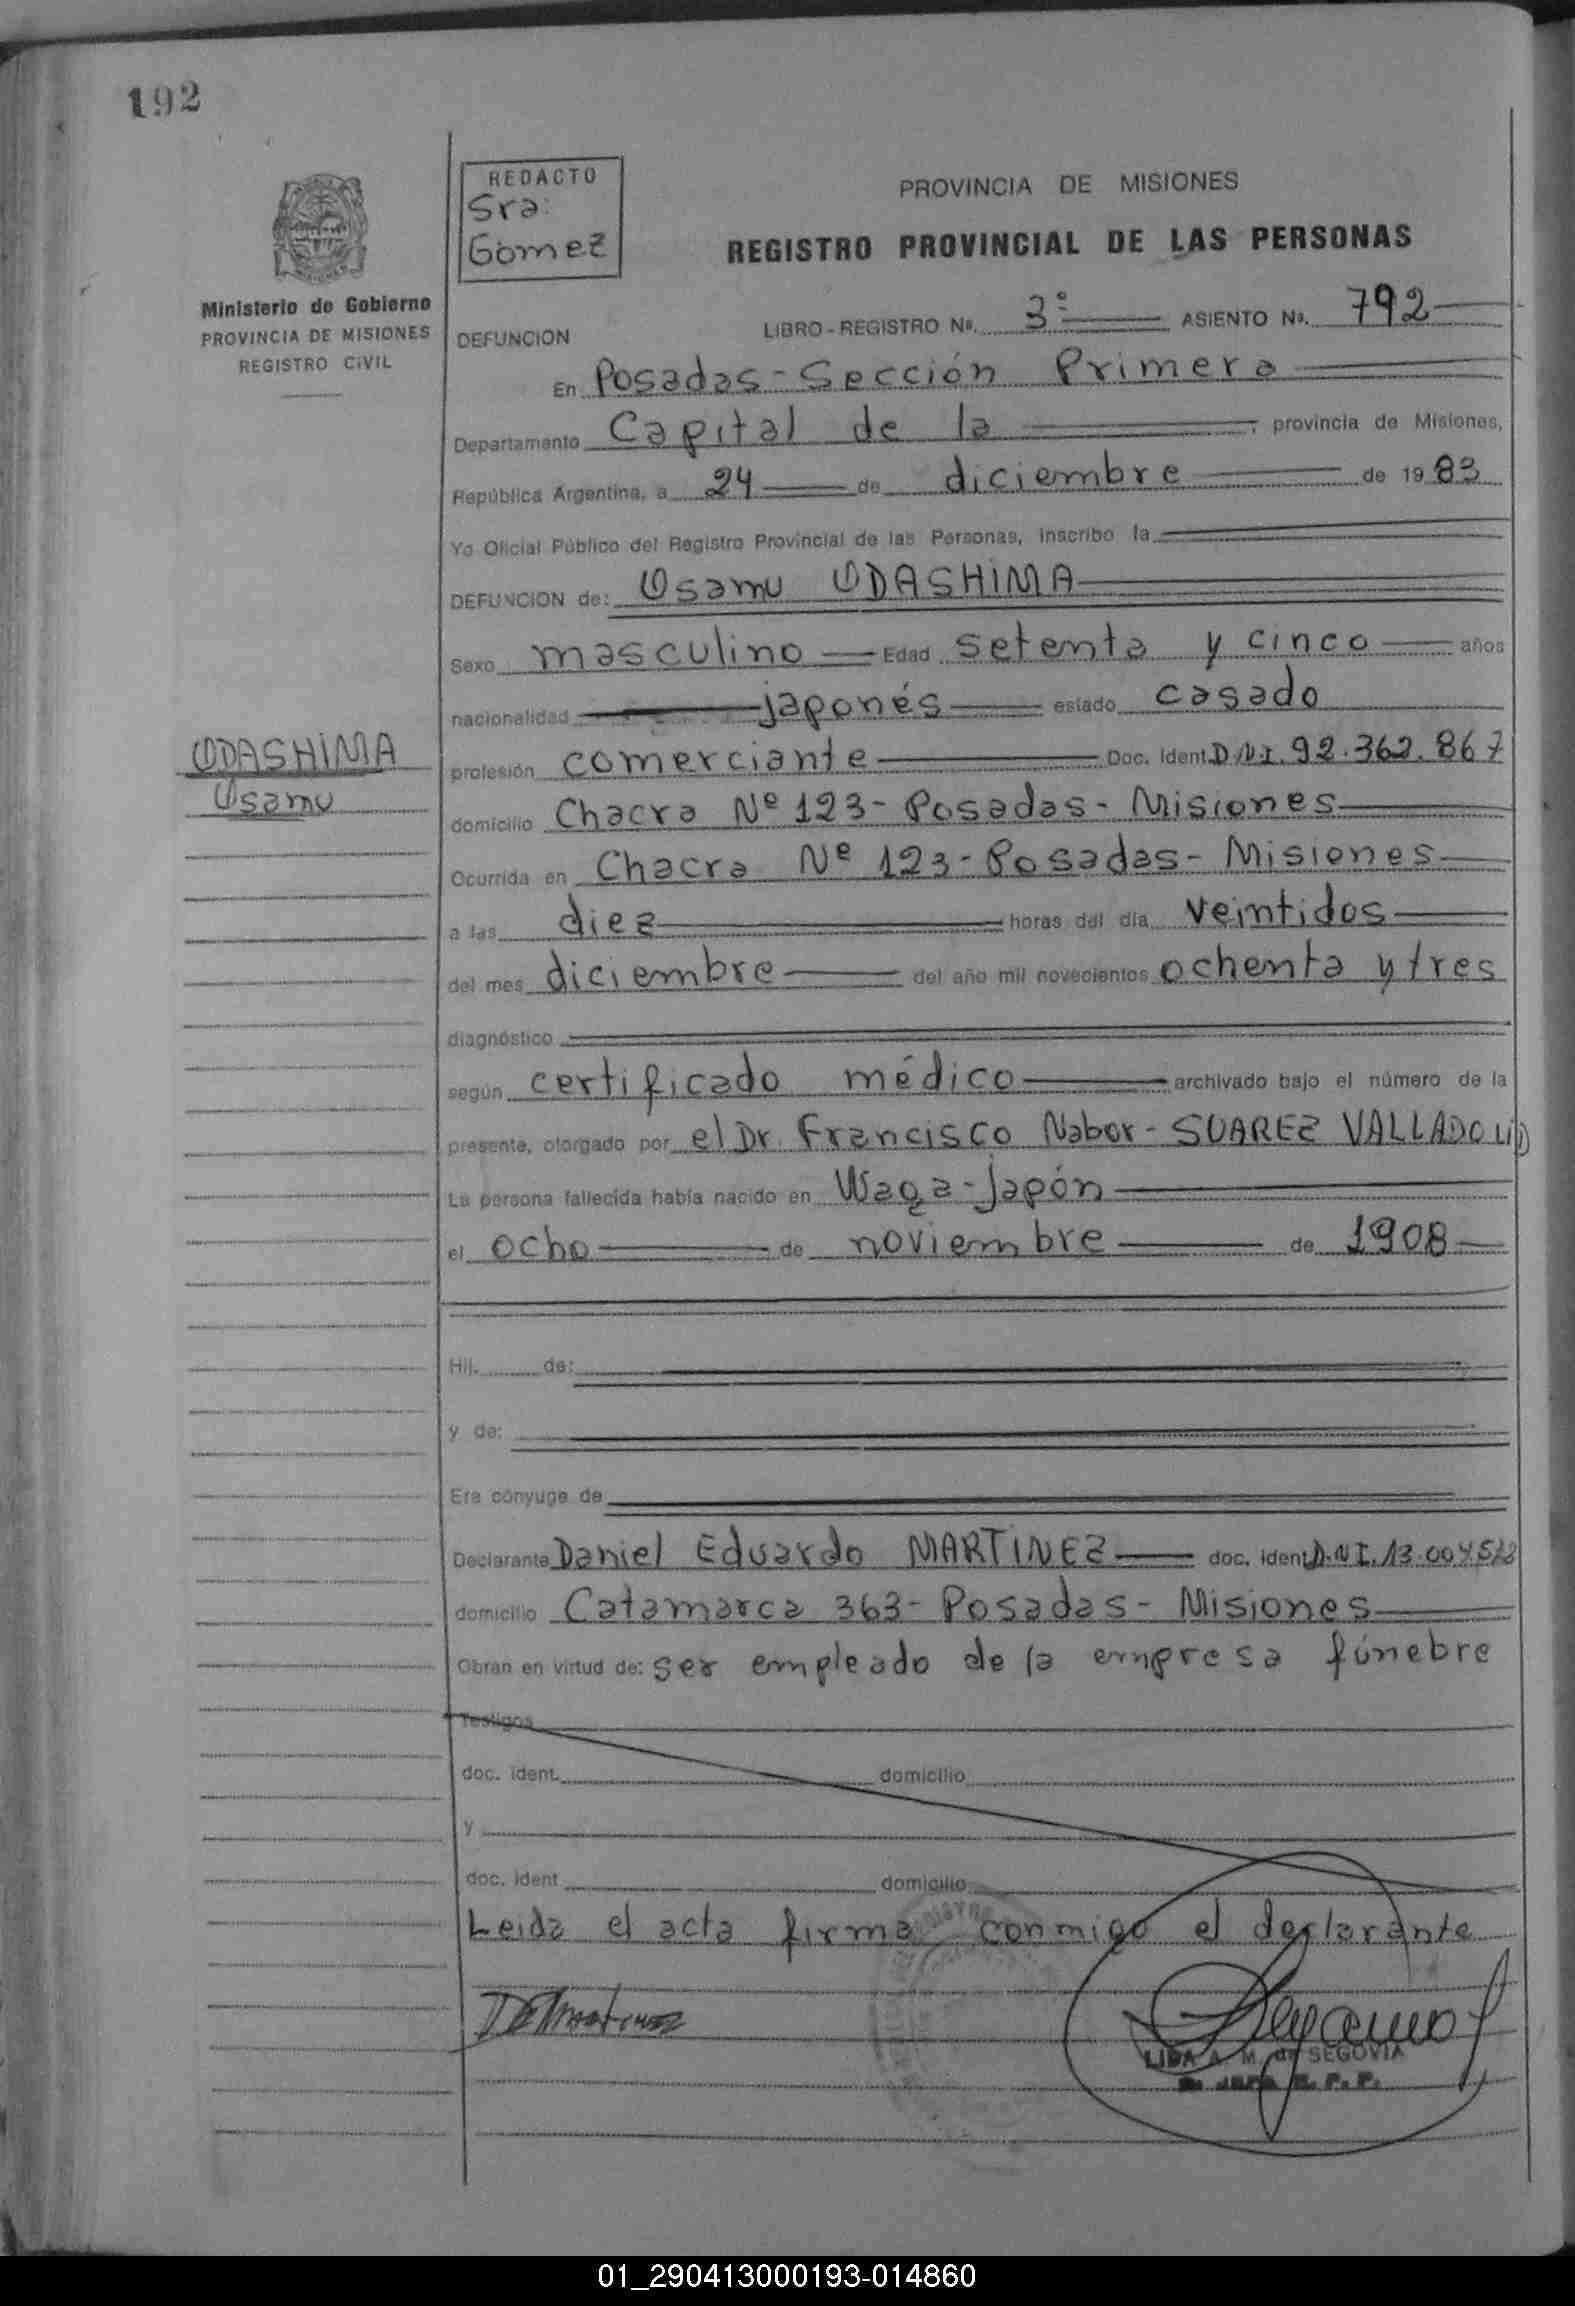 192
REDACTO
Sra:
Gomez
PROVINCIA DE MISIONES
REGISTRO PROVINCIAL DE LAS PERSONAS
Ministerio de Gobierno
PROVINCIA DE MISIONES
REGISTRO CIVIL
DEFUNCION LIBRO-REGISTRO Nº. 3º ASIENTO Nº. 792
En Posadas - Sección Primera
Departamento Capital de la , provincia de Misiones,
República Argentina, a 24 de diciembre de 1983
Yo Oficial Público del Registro Provincial de las Personas, inscribo la
DEFUNCION de: Osamu ODASHIMA
Sexo masculino Edad setenta y cinco años
nacionalidad japonés estado casado
ODASHIMA
Osamu
profesión comerciante Doc. Ident. D.N.I. 92.362.867
domicilio Chacra Nº 123 - Posadas - Misiones
Ocurrida en Chacra Nº 123 - Posadas - Misiones
a las diez horas del día veintidos
del mes diciembre del año mil novecientos ochenta y tres
diagnóstico
según certificado médico archivado bajo el número de la
presente, otorgado por el Dr. Francisco Nabor - SUAREZ VALLADOLID
La persona fallecida había nacido en Waga - Japón
el ocho de noviembre de 1908
Hij. de:
y de:
Era cónyuge de
Declarante Daniel Eduardo MARTINEZ doc. ident. D.N.I. 13.004.
domicilio Catamarca 363 - Posadas - Misiones
Obran en virtud de: ser empleado de la empresa fúnebre
Testigos
doc. ident. domicilio
y
doc. ident domicilio
Leida el acta firma conmigo el declarante
DEMartinez
LIDA A. M. de SEGOVIA
01_290413000193-014860